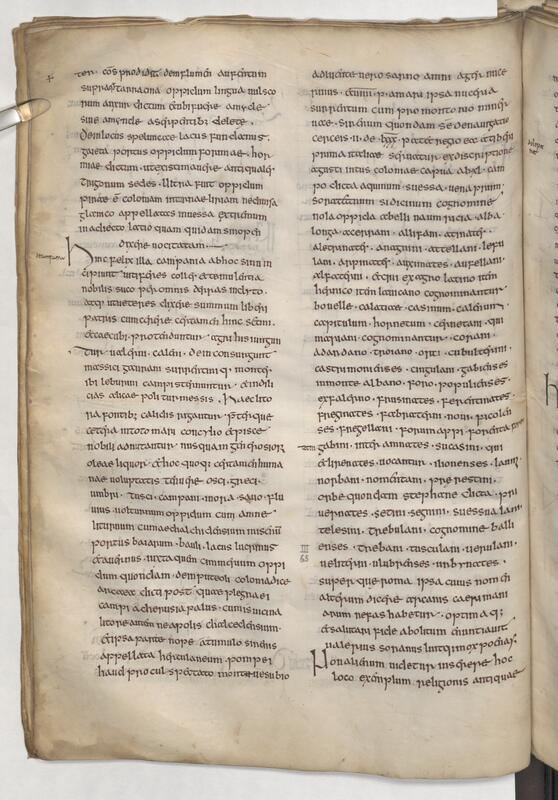 ter cos prodidit dein flumen aufentum
supra quod tarracina oppidum lingua uulsco
rum anxur dictum et ubi fuere amycle
siue amynclę a serpentibus deletę
dein locus speluncae lacus fundanus
gaeta portus oppidum formiae hor
miae dictum ut existimauere antiqua
lestrigonum sedes ultra fuit oppidum
pirae est colonia minturnae
glanico appellato
in adiecto latio quam quidam sinopen
dixere uocitatam
Hinc felix illa campania ab hoc sinu in
cipiunt uitiferi colles et temulentia
nobilis suco per omnis terras inclyto
atque ut ueteres dixere summum liberi
patris cum cerere certamen hinc setini
et caecubi protenduntur agri his iungun
tur falerni caleni dein consurgunt
massici gaurani surrentini que montes
ibi leburini campi sternuntur et in deli
cias alicae politur messis haec lito
ra fontibus calidis rigantur praeter que
cetera in toto mari conchylio et pisce
nobili adnotantur nusquam generosior
oleae liquor et hoc quoque certamen huma
nae uoluptatis tenuere osci greci
umbri tusci campani in ora sauo flu
uius uolturnum oppidum cum amne
liturnum cumae chalcidensium misenum
portus baiarum bauli lacus lucrinus
et auernus iuxta quem cimmerium oppi
dum quondam dein puteoli colonia dice
archea dicti post quae phlegraei
campi acherusia palus cumis uicina
litore autem neapolis chalcedensium
et ipsa parthenope a tumulo sirenis
appellata herculaneum pompei
haud procul spectato monte uesubio
adluente uero sarno amni ager nuce
rinus et uiiii p a mari ipsa nuceria
surrentum cum promonturio mineru
uae sirenum quondam sede nauigatio
cerceis
prima italiae seruatur ex discriptione
agusti intus coloniae capua ab campo
dicta aquinum suessa uenafrum
sora teanum sidicinum cognomine
nola oppida abelli naum ricia alba
longa acerrani allifani atinates
aletrinates anagnini attellani
lani arpinates auximates auellani
alfaterni et qui ex agro latino item
hernico item lauicano cognominantur
bouille calatiae casinum calenum
capitulum hornetum ceretani qui
mariani cognominantur coriani
a dardano troiano orti cubulterini
castrimonienses cingulani gabienses
in monte albano foro populienses
ex falerno frusinates ferentinates
freginates fabraterni noui ricolen
ses fregellani forum appi forentani
gabini interamnates sucasini qui
et lirenates uocantur ilionenses
norbani nomentani prenestini
urbe quondam stephane dicta pri
uernates setini segnini suessulani
telesini trebulani cognomine balli
enses trebani tusculani uerulani
ueliterni ulubrenses urbinates
super que roma ipsa cuius nomen
alterum dicere arcanis caerimoni
arum nefas habetur optima que
et salutari fide abolitum enuntiauit
ualerius soranus luitque mox poenas
Non alienum uidetur inserere hoc
loco exemplum religionis antiquae
III
65